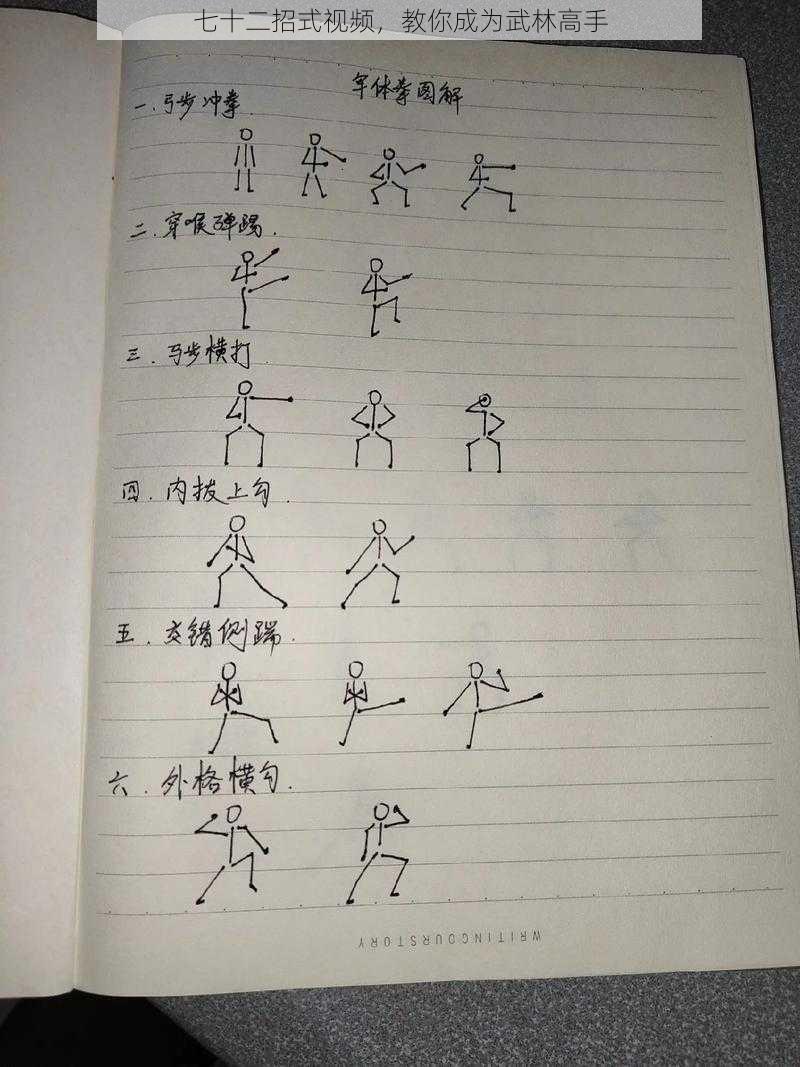 七十二招式视频，教你成为武林高手
军体拳图解
一.弓步冲拳.
二.穿喉弹踢.
三.马步横打
四.内拨上勾.
五.交错侧踹.
六.外格横勾.
WRITINGOURSTORY